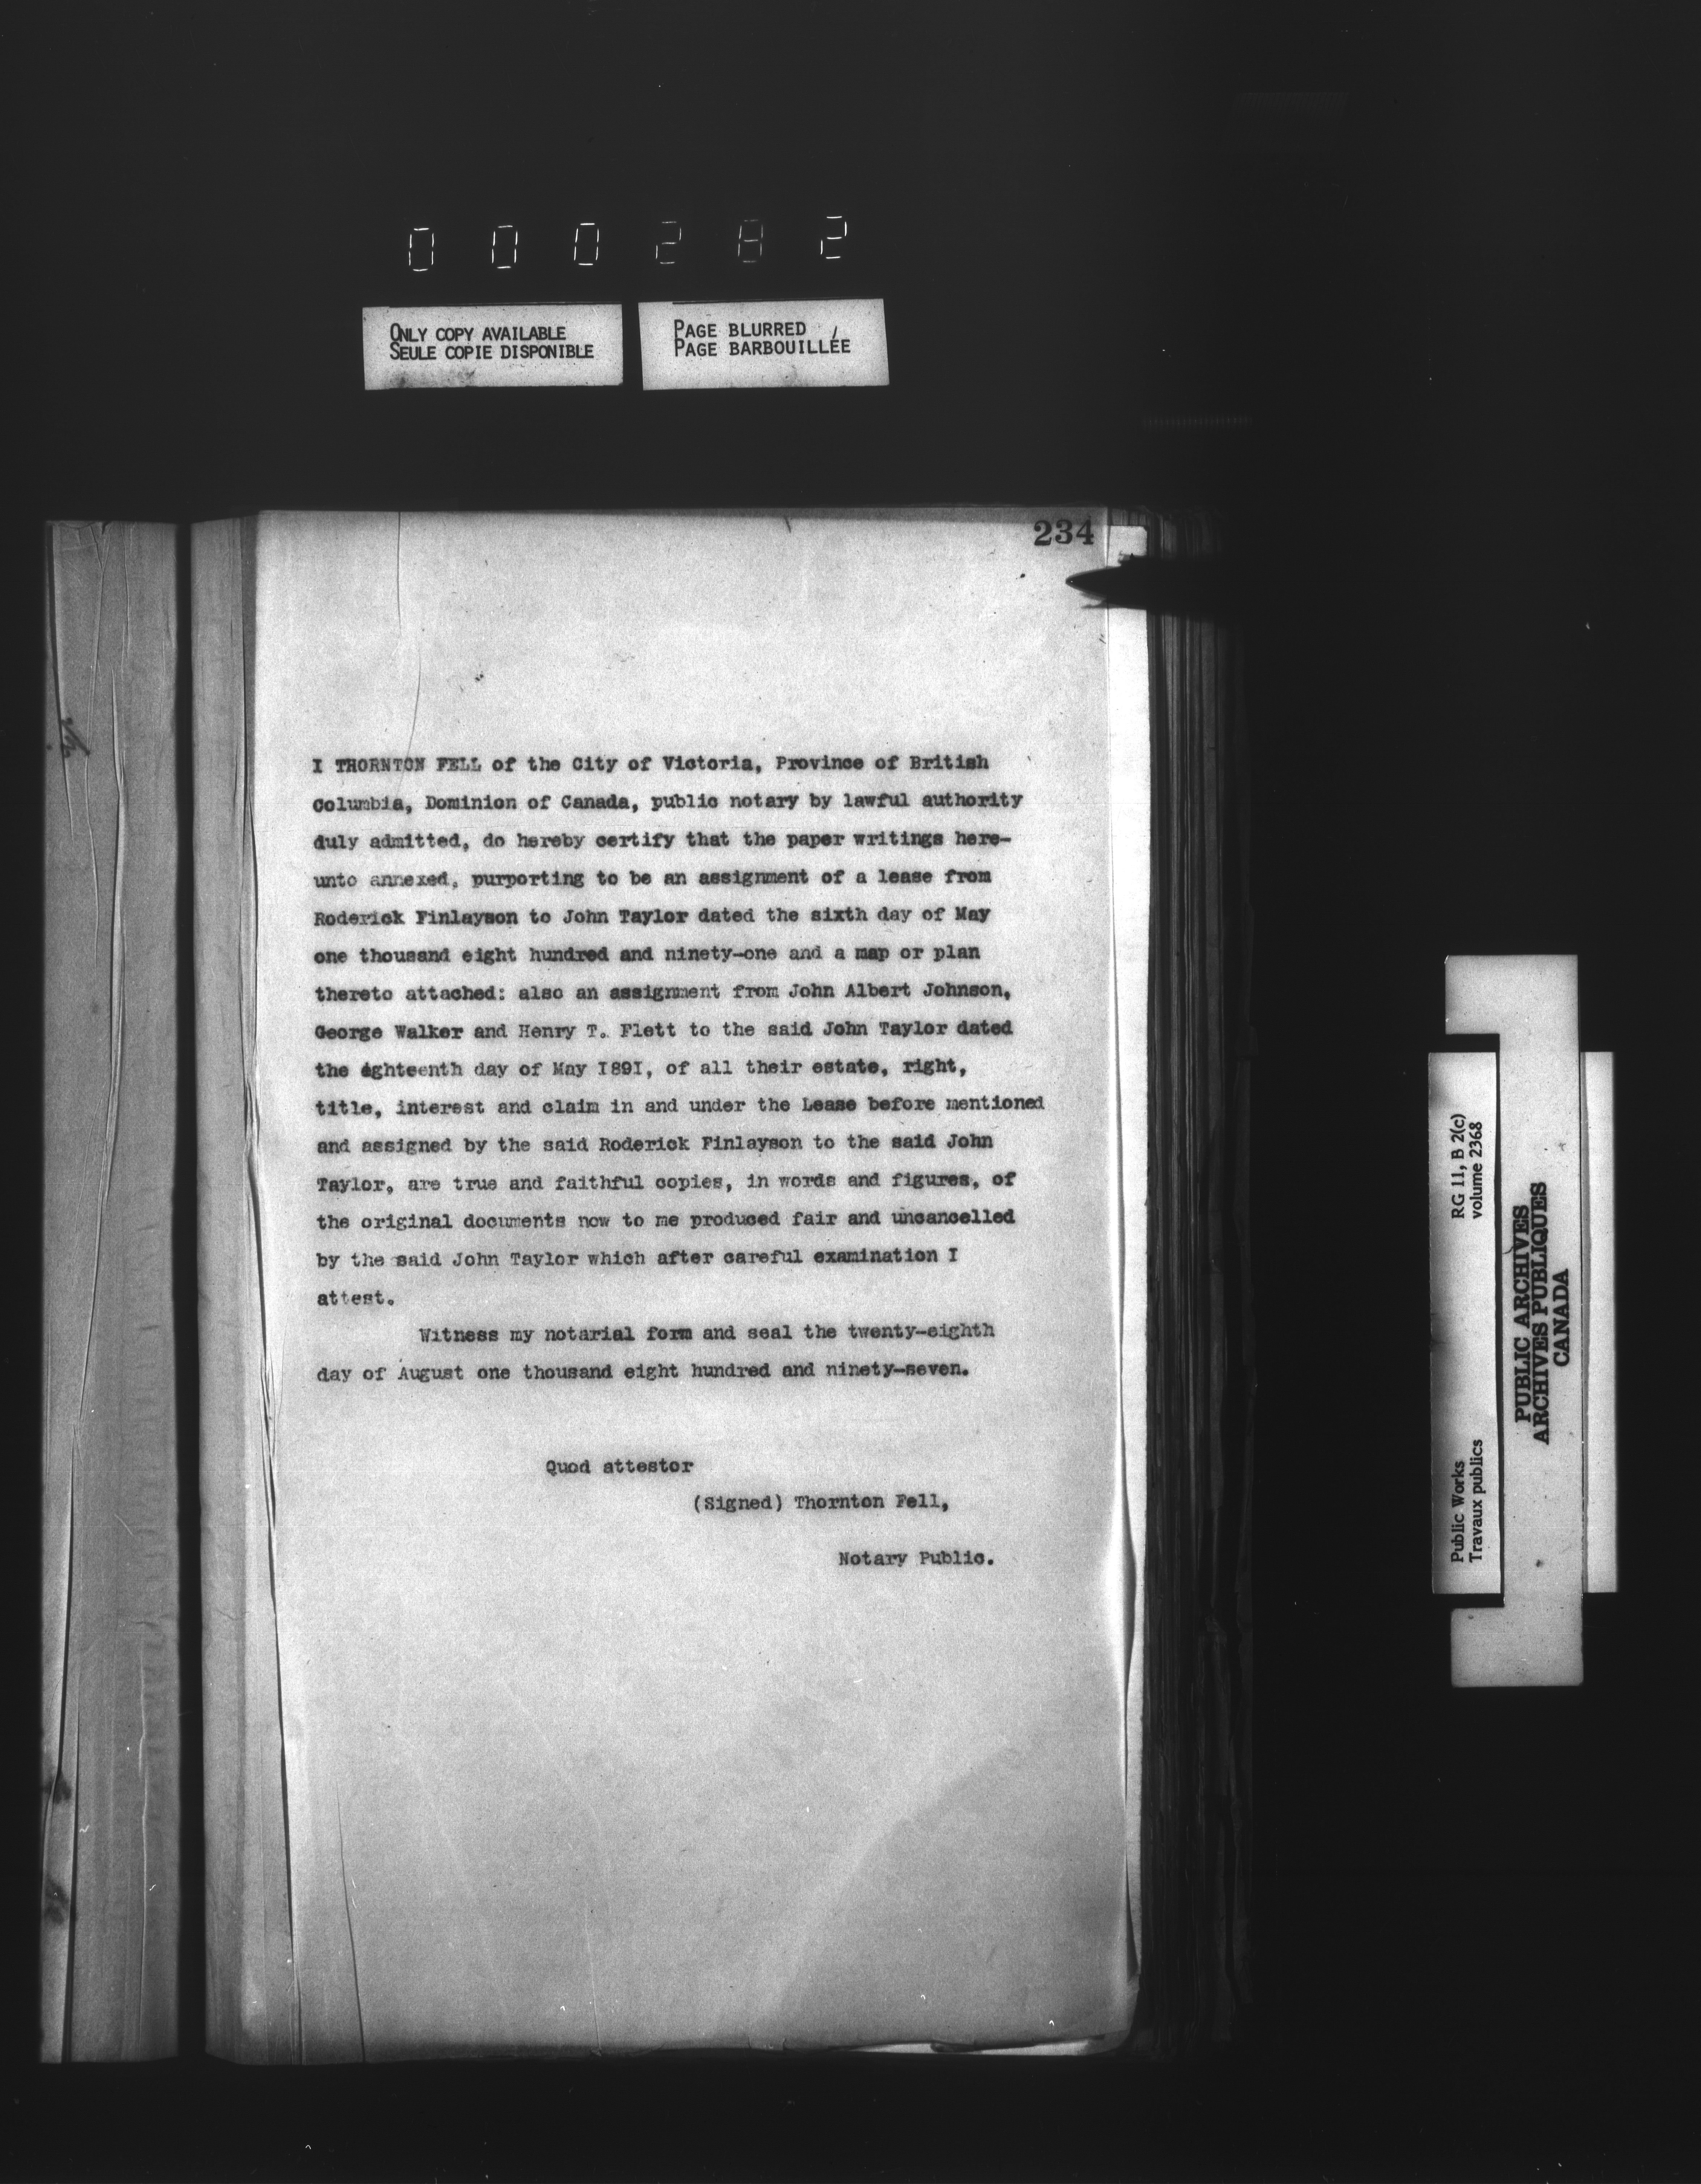 000282
ONLY COPY AVAILABLE
SEULE COPIE DISPONIBLE
PAGE BLURRED
PAGE BARBOUILLÉE
234
I THORNTON FELL of the City of Victoria, Province of British
Columbia, Dominion of Canada, public notary by lawful authority
duly admitted, do hereby certify that the paper writings here-
unto annexed, purporting to be an assignment of a lease from
Roderick Finlayson to John Taylor dated the sixth day of May
one thousand eight hundred and ninety-one and a map or plan
thereto attached: also an assignment from John Albert Johnson,
George Walker and Henry T. Flett to the said John Taylor dated
the eghteenth day of May I89I, of all their estate, right,
title, interest and claim in and under the Lease before mentioned
and assigned by the said Roderick Finlayson to the said John
Taylor, are true and faithful copies, in words and figures, of
the original documents now to me produced fair and uncancelled
by the said John Taylor which after careful examination I
attest.
Witness my notarial form and seal the twenty-eighth
day of August one thousand eight hundred and ninety-seven.
Quod attestor
(Signed) Thornton Fell,
Notary Public.
Public Works
Travaux publics
RG 11, B 2(c)
volume 2368
PUBLIC ARCHIVES
ARCHIVES PUBLIQUES
CANADA